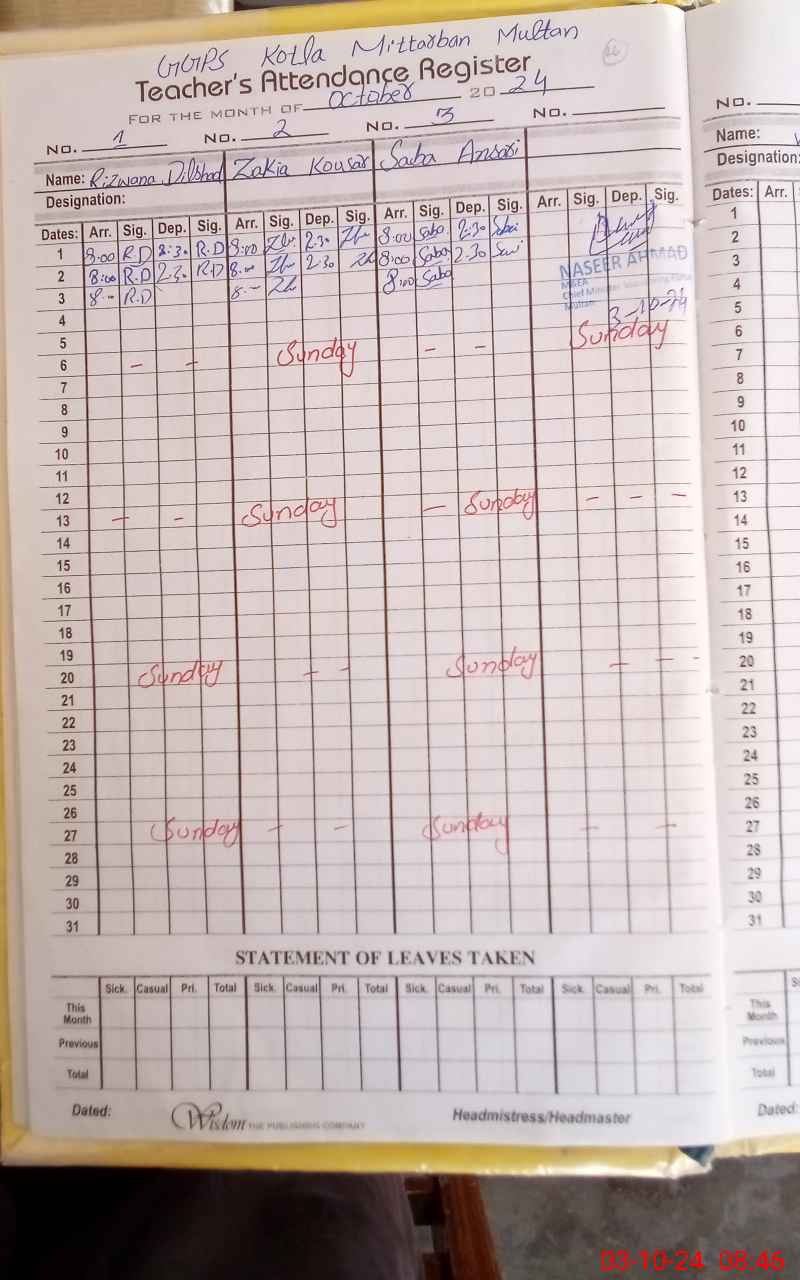 GGPS Kotla Mittarban Multan
Teacher's Attendance Register
FOR THE MONTH OF October 2024
No. 1 No. 2 No. 3 No.
Name: Rizwana Dilshad Zakia Kousar Saba Ansari
Designation:
Dates: Arr. Sig. Dep. Sig. Arr. Sig. Dep. Sig. Arr. Sig. Dep. Sig. Arr. Sig. Dep. Sig.
1 8:00 R.D 2:30 R.D 8:00 2.30 8:00 Saba 2:30
2 8:00 R.D 2:30 R.D 8.00 2.30 8:00 Saba 2.30
3 8.00 R.D 8.00 8:00 Saba
NASEER AHMAD
MEA
Chief Minister Monitoring Force
Multan
3-10-24
4
5
6 - - Sunday - - Sunday
7
8
9
10
11
12
13 - - Sunday - Sunday - - -
14
15
16
17
18
19
20 Sunday - - Sunday - - -
21
22
23
24
25
26
27 Sunday - - Sunday - -
28
29
30
31
STATEMENT OF LEAVES TAKEN
Sick. Casual Pri. Total Sick. Casual Pri. Total Sick. Casual Pri. Total Sick. Casual Pri. Total
This Month
Previous
Total
Dated: Wisdom THE PUBLISHING COMPANY Headmistress/Headmaster
No.
Name:
Designation:
Dates: Arr.
1
2
3
4
5
6
7
8
9
10
11
12
13
14
15
16
17
18
19
20
21
22
23
24
25
26
27
28
29
30
31
This Month
Previous
Total
Dated:
03-10-24 08:46